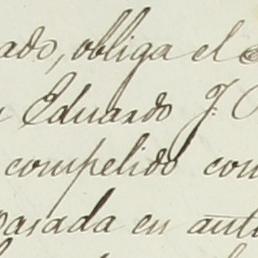 ado, obliga el
Eduardo J.
compelido con
pasada en auto